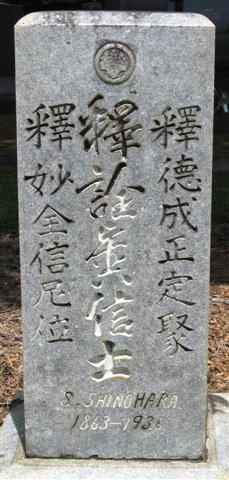 釋德成正定聚
釋詮信士
釋妙全信尼位
S. SHINOHARA
1863-1936